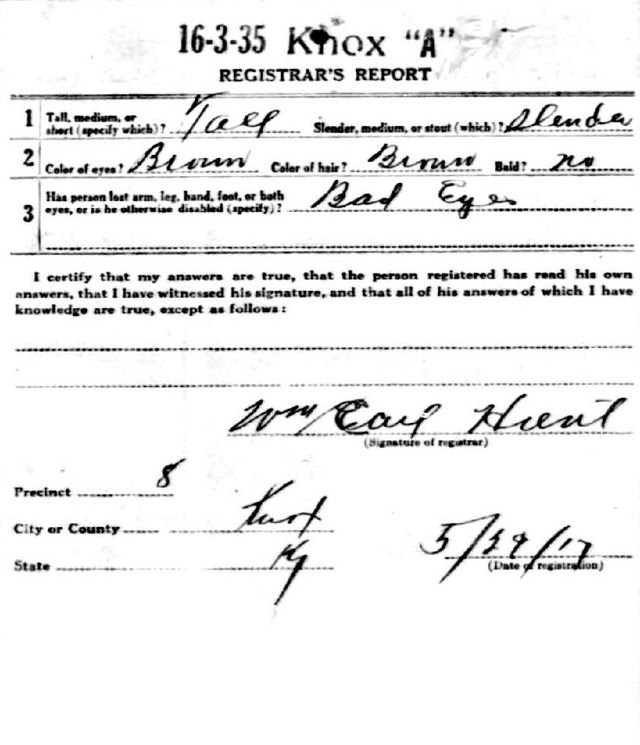 16-3-35 Knox "A"
REGISTRAR'S REPORT
1 Tall, medium, or short (specify which)? Tall Slender, medium, or stout (which)? Slender
2 Color of eyes? Brown Color of hair? Brown Bald? no
3 Has person lost arm, leg, hand, foot, or both eyes, or is he otherwise disabled (specify)? Bad Eyes
I certify that my answers are true, that the person registered has read his own
answers, that I have witnessed his signature, and that all of his answers of which I have
knowledge are true, except as follows:
Wm Earl
(Signature of registrar)
Precinct 8
City or County Knox
State Ky
(Date of registration)